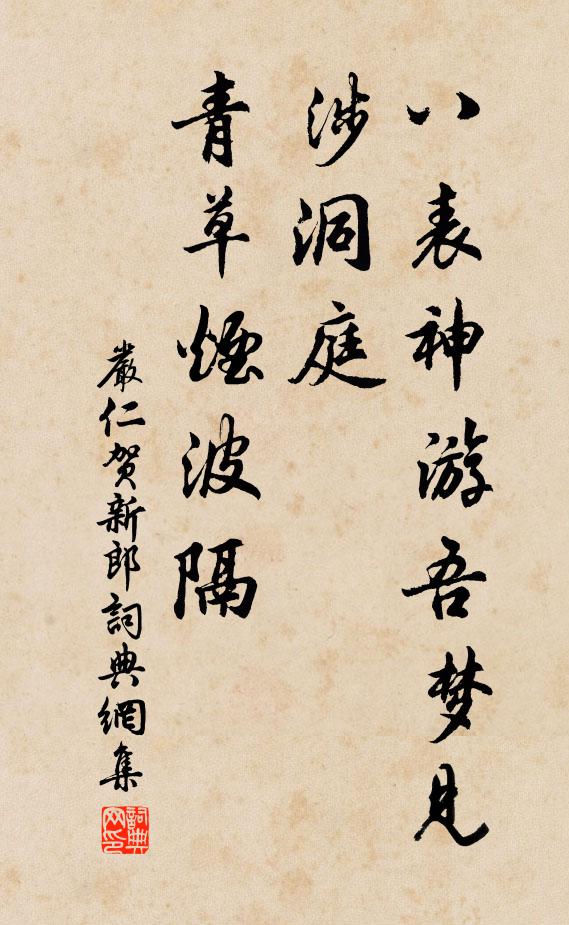 八表神游吾梦見
涉洞庭
青草煙波隔
嚴仁贺新郎詞典網集
詞典网印